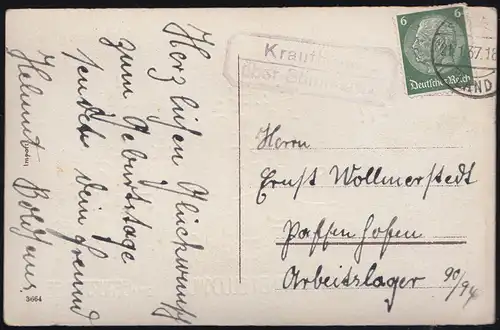 Herzlichen Glückwunsch
zum Geburtstage
sendet dein Freund
Helmut
Kraut
über
6
6
Deutsches Reich
37.18
Herrn
Ernst Wollmerstedt
Paffenhofen
Arbeitslager 90/94
3664